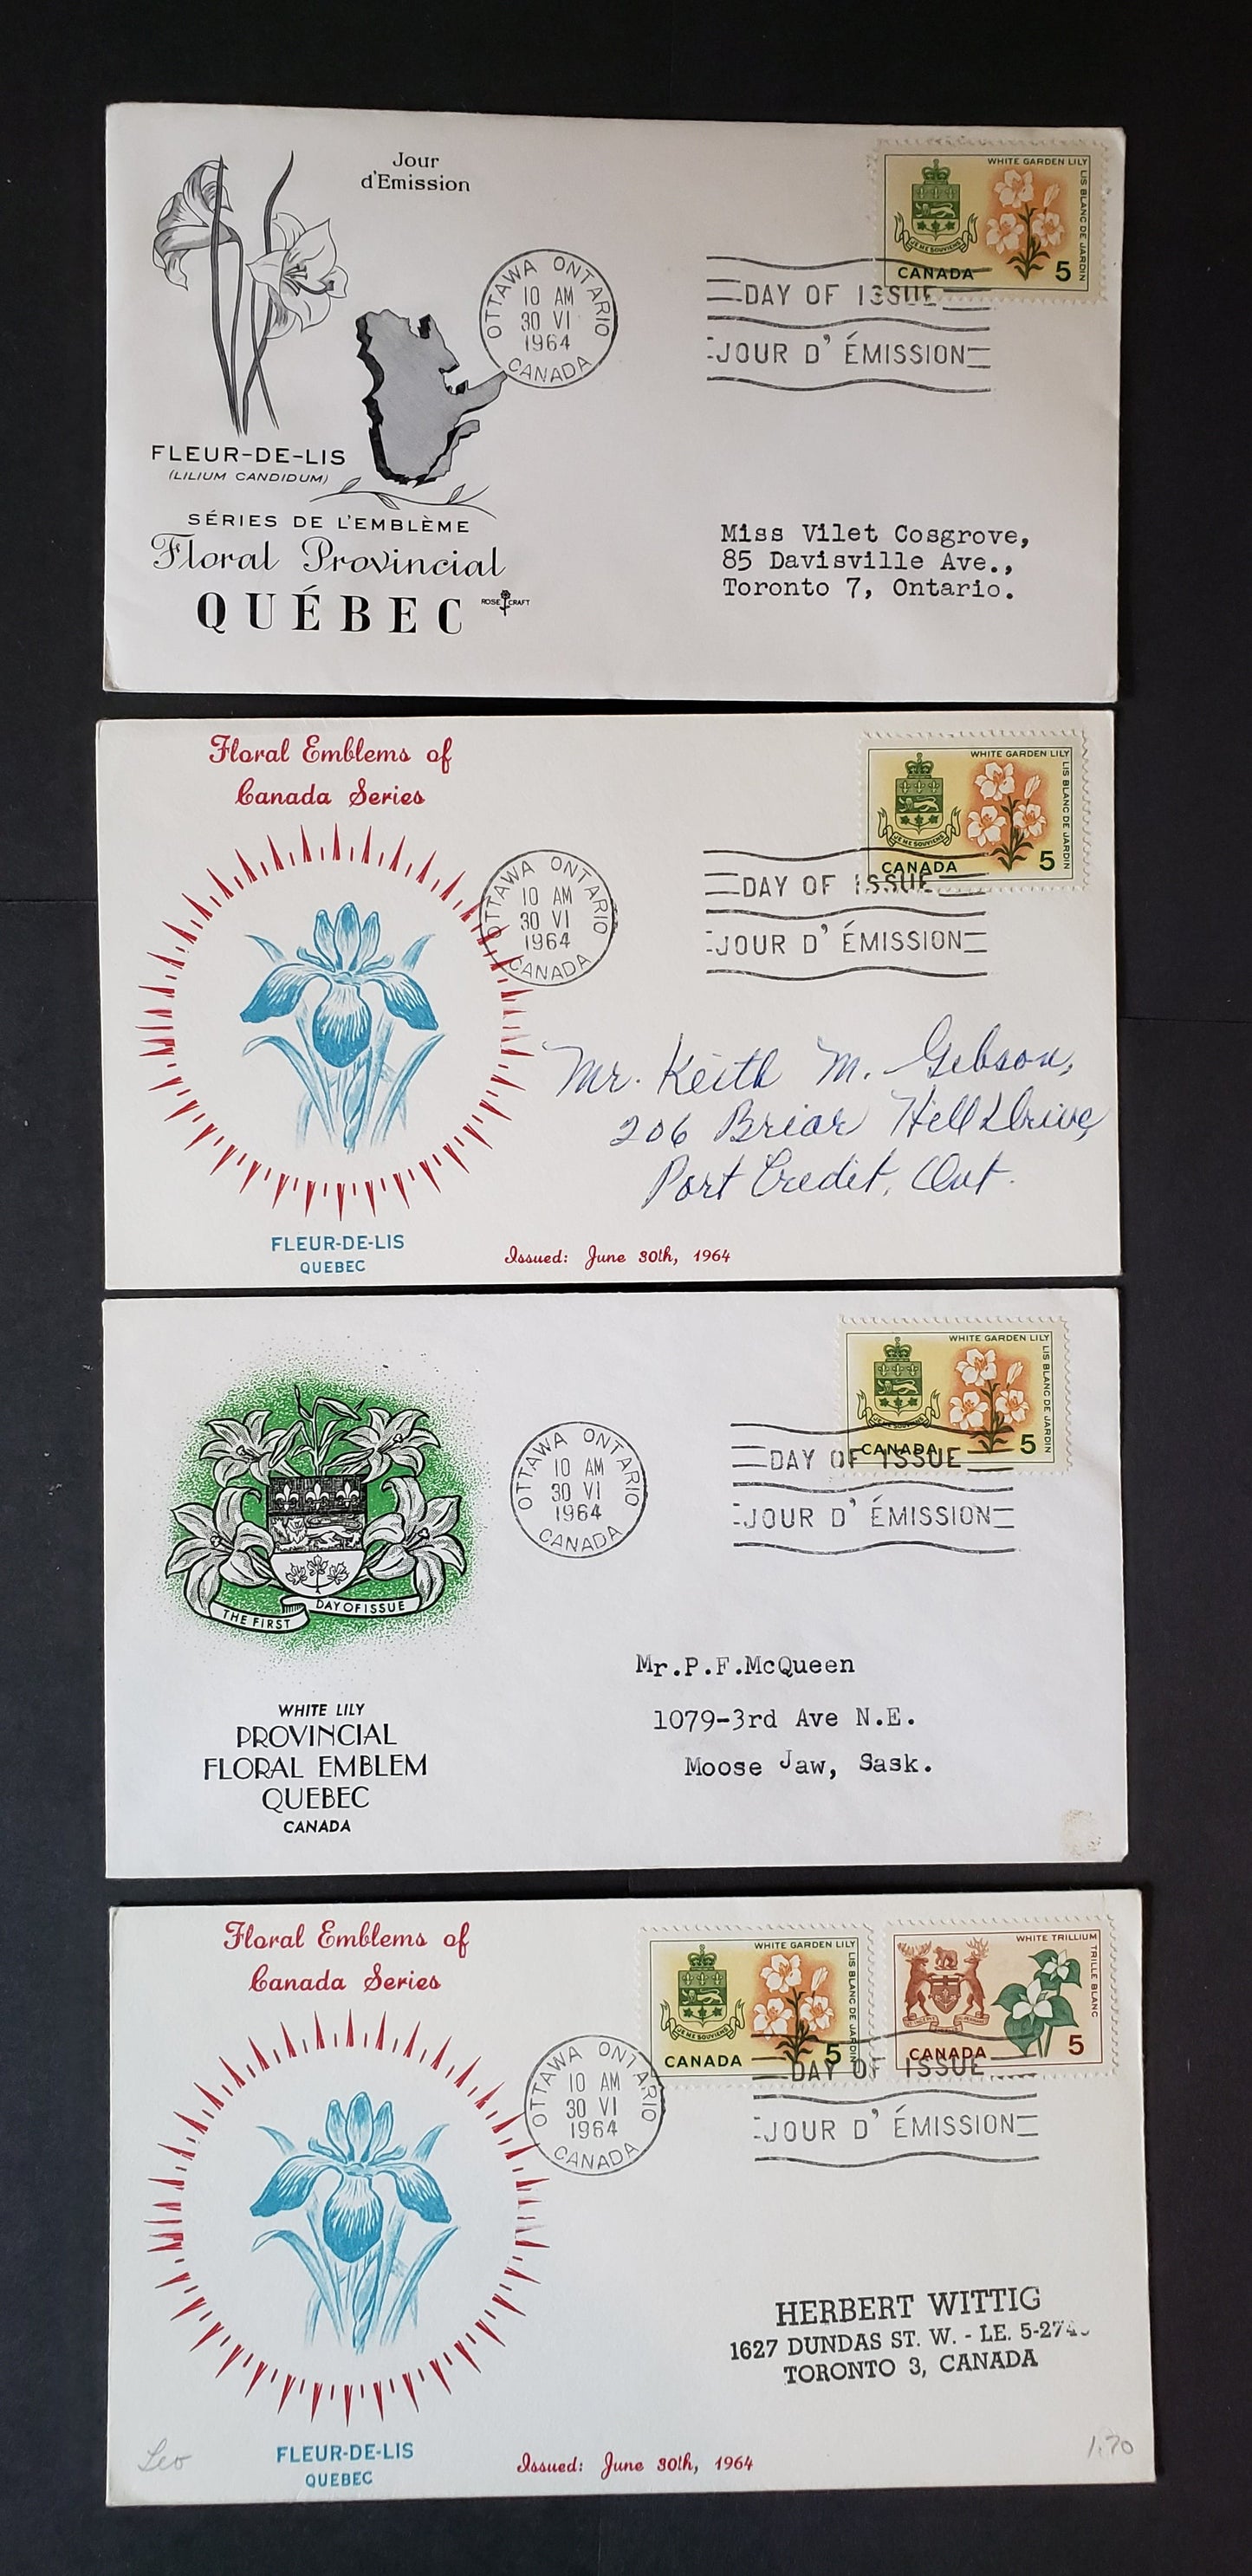 Jour
d'Emission
WHITE GARDEN LILY
LIS BLANC DE JARDIN
JE ME SOUVIENS
CANADA 5
OTTAWA ONTARIO
10 AM
30 VI
1964
CANADA
DAY OF ISSUE
JOUR D' ÉMISSION
FLEUR-DE-LIS
(LILIUM CANDIDUM)
SÉRIES DE L'EMBLÈME
Floral Provincial
QUÉBEC
ROSE CRAFT
Miss Vilet Cosgrove,
85 Davisville Ave.,
Toronto 7, Ontario.
Floral Emblems of
Canada Series
WHITE GARDEN LILY
LIS BLANC DE JARDIN
JE ME SOUVIENS
CANADA 5
OTTAWA ONTARIO
10 AM
30 VI
1964
CANADA
DAY OF ISSUE
JOUR D' ÉMISSION
Mr. Keith M. Gibson,
206 Briar Hill Drive,
Port Credit, Ont.
FLEUR-DE-LIS
QUEBEC
Issued: June 30th, 1964
WHITE GARDEN LILY
LIS BLANC DE JARDIN
JE ME SOUVIENS
CANADA 5
OTTAWA ONTARIO
10 AM
30 VI
1964
CANADA
DAY OF ISSUE
JOUR D' ÉMISSION
THE FIRST DAY OF ISSUE
WHITE LILY
PROVINCIAL
FLORAL EMBLEM
QUEBEC
CANADA
Mr.P.F.McQueen
1079-3rd Ave N.E.
Moose Jaw, Sask.
Floral Emblems of
Canada Series
WHITE GARDEN LILY
LIS BLANC DE JARDIN
JE ME SOUVIENS
CANADA 5
WHITE TRILLIUM
TRILLE BLANC
CANADA 5
OTTAWA ONTARIO
10 AM
30 VI
1964
CANADA
DAY OF ISSUE
JOUR D' ÉMISSION
HERBERT WITTIG
1627 DUNDAS ST. W. - LE.
TORONTO 3, CANADA
Leo
FLEUR-DE-LIS
QUEBEC
Issued: June 30th, 1964
1.70